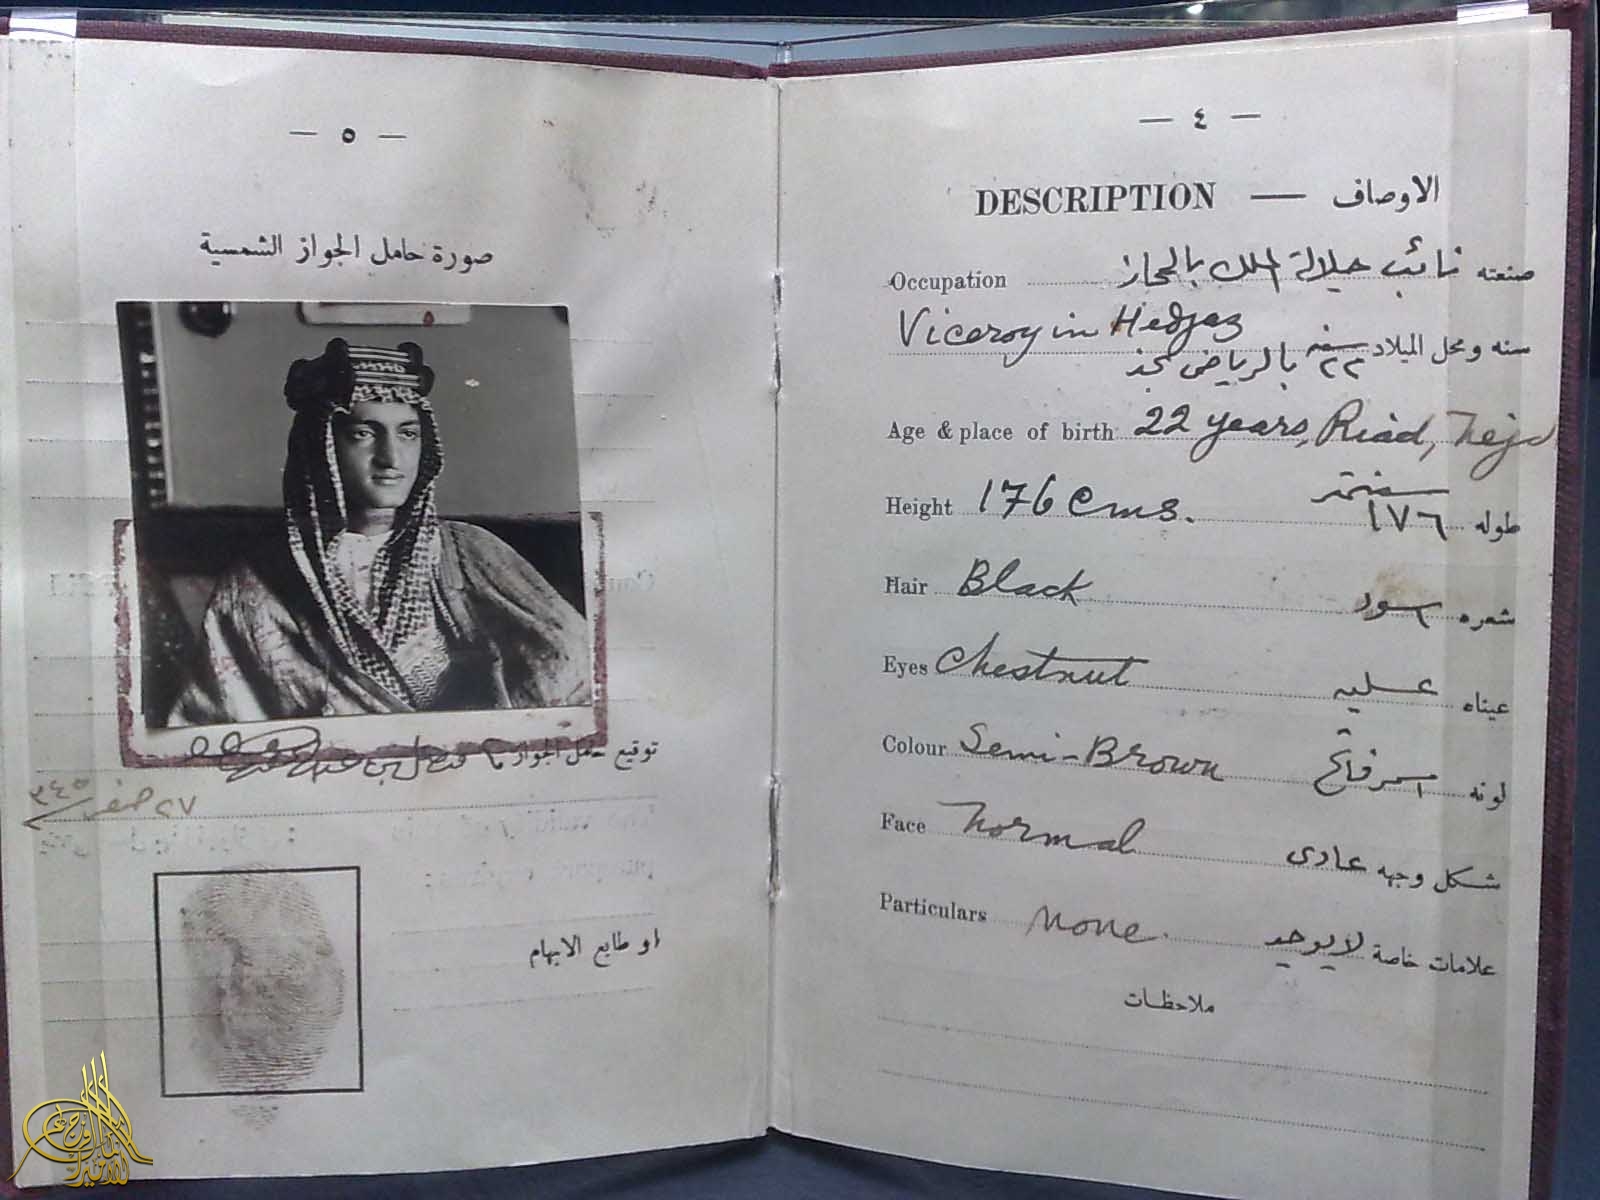 — ٤ —
DESCRIPTION — الاوصاف
Occupation نائب جلالة الملك بالحجاز صنعته
Viceroy in Hedjaz
سنه ومحل الميلاد ٢٢ سنة بالرياض نجد
Age & place of birth 22 years, Riad, Nejd
Height 176 cms. طوله ١٧٦ سنتمتر
Hair Black شعره اسود
Eyes Chestnut عيناه عسليه
Colour Semi-Brown لونه اسمر فاتح
Face Normal شكل وجهه عادى
Particulars None. علامات خاصة لا يوجد
ملاحظات
— ٥ —
صورة حامل الجواز الشمسية
توقيع حامل الجواز
٢٧ صفر ٣٤٥
او طابع الابهام